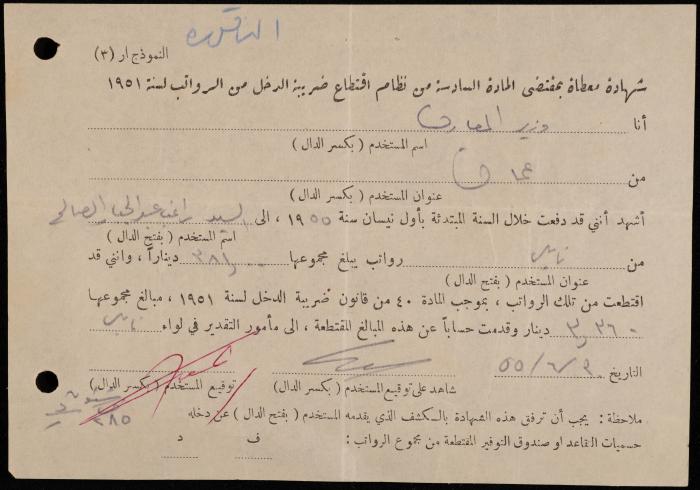 الناقوره
النموذج ار (٣)
شهادة معطاة بمقتضى المادة السادسة من نظام اقتطاع ضريبة الدخل من الرواتب لسنة ١٩٥١
أنا وزير المعارف
اسم المستخدم ( بكسر الدال )
من عمان
عنوان المستخدم ( بكسر الدال )
أشهد أنني قد دفعت خلال السنة المبتدئة بأول نيسان سنة ١٩٥٥ ، الى السيد راغب عبد الجبار الصالح
اسم المستخدم ( بفتح الدال )
من نابلس رواتب يبلغ مجموعها ٣٨١ ديناراً ، وانني قد
عنوان المستخدم ( بفتح الدال )
اقتطعت من تلك الرواتب ، بموجب المادة ٤٠ من قانون ضريبة الدخل لسنة ١٩٥١ ، مبالغ مجموعها
٣٫٣٦٠ دينار وقدمت حساباً عن هذه المبالغ المقتطعة ، الى مأمور التقدير في لواء نابلس
التاريخ ٥٥/٦/٩
شاهد على توقيع المستخدم ( بكسر الدال ) توقيع المستخدم ( بكسر الدال )
ملاحظة : يجب أن ترفق هذه الشهادة بالكشف الذي يقدمه المستخدم ( بفتح الدال ) عن دخله
٢٨٥
ف د
حسميات التقاعد او صندوق التوفير المقتطعة من مجموع الرواتب :